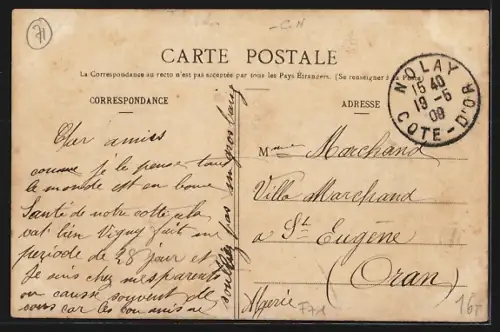 71
-C.N
CARTE POSTALE
La Correspondance au recto n'est pas acceptée par tous les Pays Étrangers. (Se renseigner à la Poste)
CORRESPONDANCE
ADRESSE
NOLAY
15 40
19-5
09
COTE-D'OR
Cher amies
comme je le pense tous
le monde est en bonne
Santé de notre cotté cela
vat bien Vigny fait une
periode de 28 jour et
Je suis chez mes parents
on cause souvent de
vous car les
un gros
Mme Marchand
Villa Marchand
a St Eugène
(Oran)
Algérie
F71